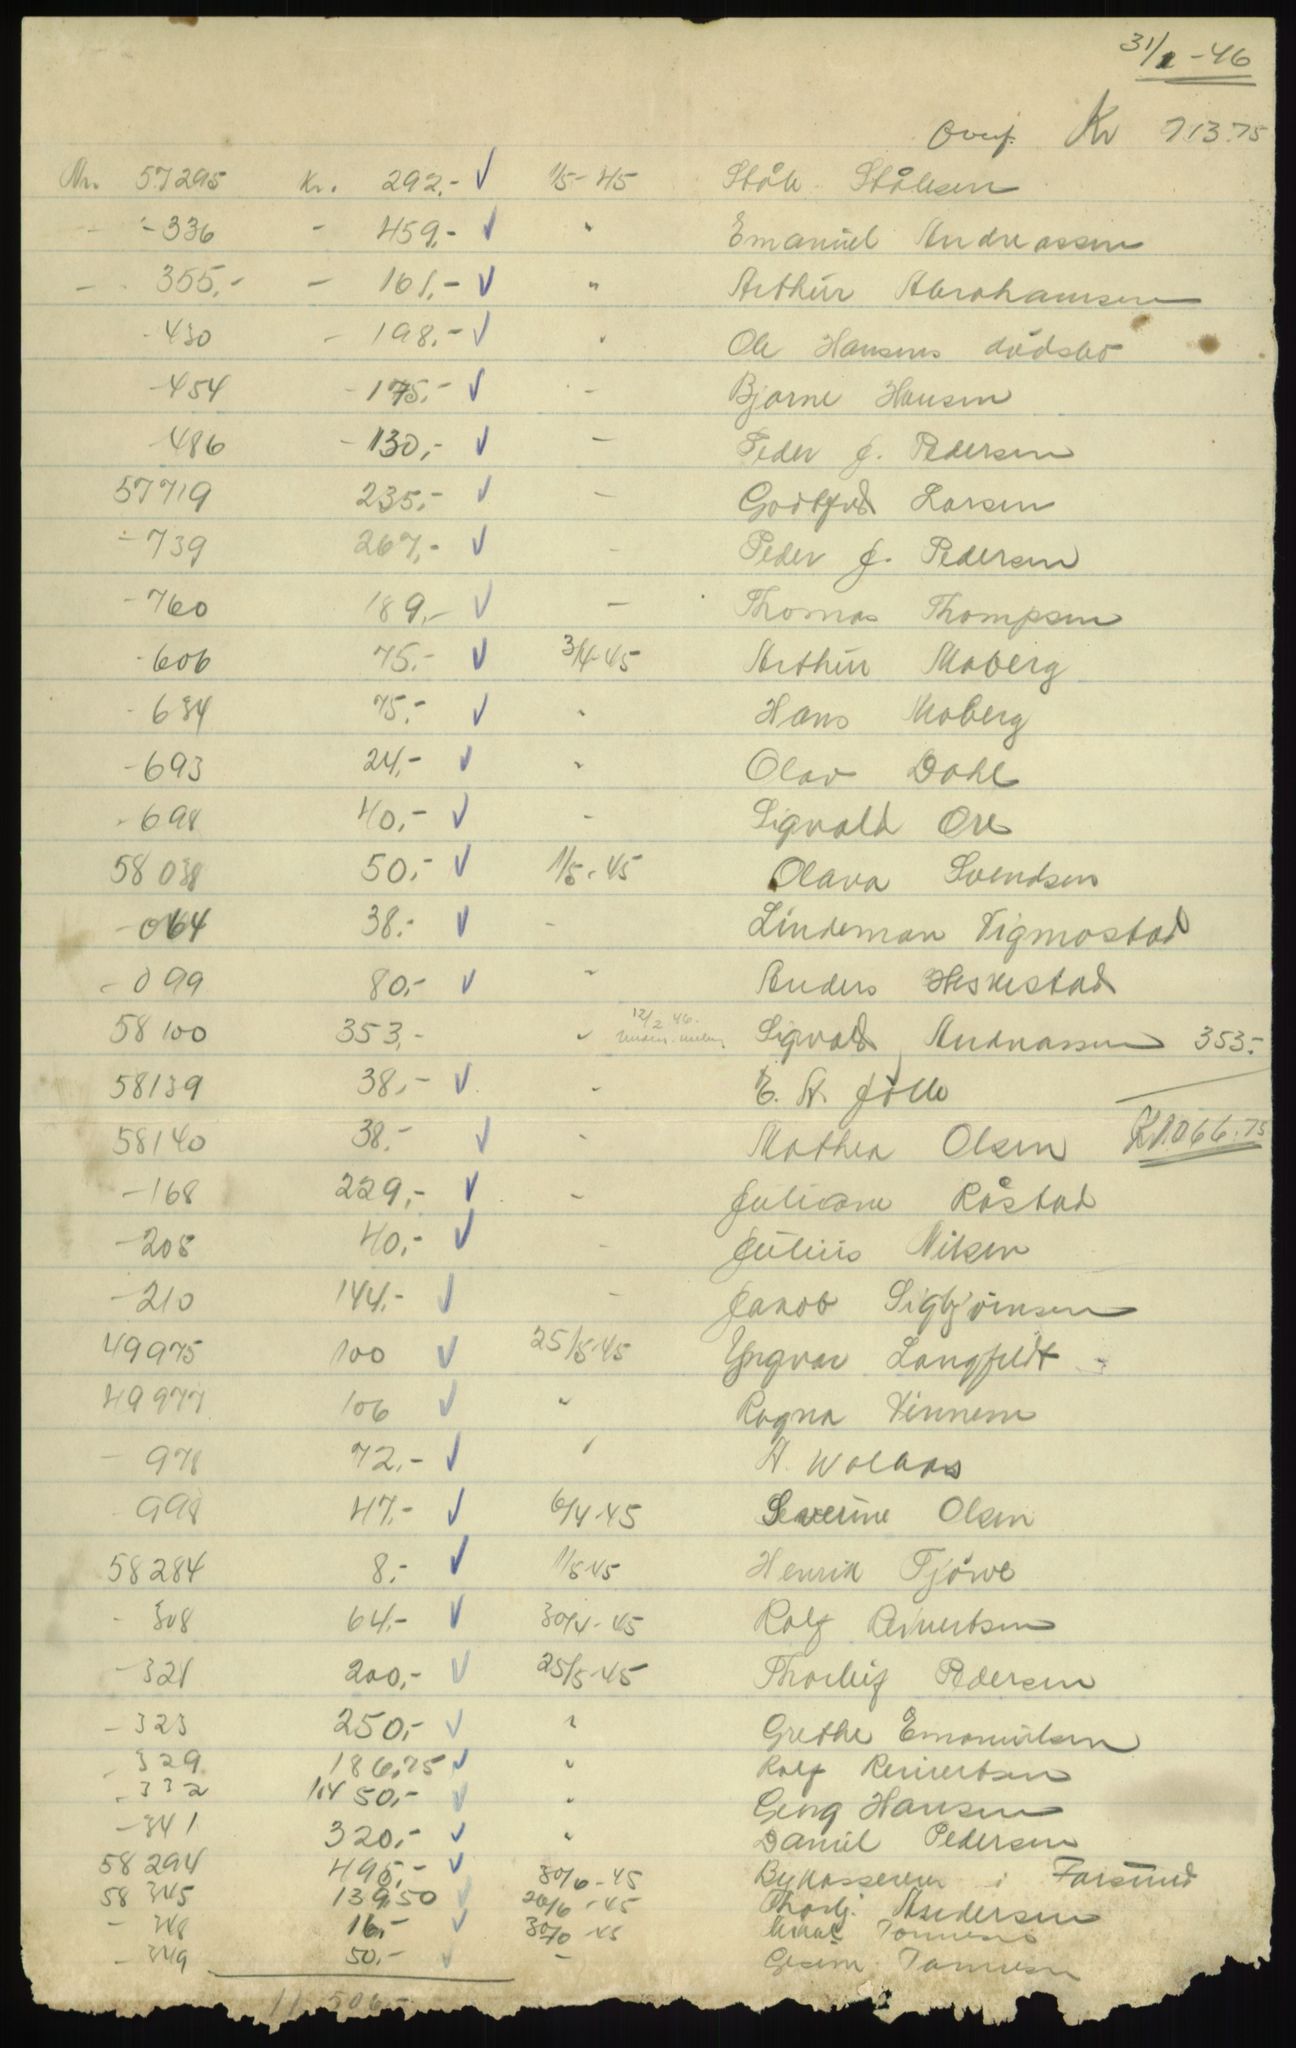 31/1 - 46
Overf. Kr 713.75
Nr. 57295 Kr. 292,- ✓ 1/5-45 Ståle Stålesen
- -336 - 459,- ✓ " Emanuel Andreassen
- - 355,- - 161,- ✓ " Arthur Abrahamsen
-430 - 198,- ✓ " Ole Hansens dødsbo
-454 - 175,- ✓ - Bjarne Hansen
-486 - 130,- ✓ - Peder J. Pedersen
57719 235,- ✓ - Godtfred Larsen
-739 267,- ✓ - Peder J. Pedersen
-760 189,- ✓ - Thomas Thompsen
-606 75,- ✓ 3/4-45 Arthur Moberg
-634 75,- ✓ " Hans Moberg
-693 24,- ✓ " Olav Dahl
-698 40,- ✓ - Sigvald Ore
58038 50,- ✓ 1/5-45 Olava Svendsen
-064 38,- ✓ - Lindeman Vigmostad
-099 80,- ✓ " Anders Heskestad
58100 353,- " 12/2 46. Sigvald Andreassen 353,-
58139 38,- ✓ - E. A. Jølle
58140 38,- ✓ - Mathea Olsen 1.066.75
-168 229,- ✓ - Juliane Råstad
-208 40,- ✓ - Julius Nilsen
-210 144,- ✓ - Jakob Sigbjørnsen
49975 100 ✓ 25/5-45 Yngvar Langfeldt
49977 106 ✓ " Ragna Vinnem
- 978 72,- ✓ " A. Wolaas
998 47,- ✓ 6/4-45 Severine Olsen
58284 8,- ✓ 1/5-45 Henrik Fjørve
- 308 64,- ✓ 30/4-45 Rolf Reinertsen
-321 200,- ✓ 25/5-45 Thorleif Pedersen
-323 250,- ✓ " Grethe Emanuelsen
-329 186,75 ✓ " Rolf Reinertsen
-332 50,- ✓ " Georg Hansen
-341 320,- ✓ " Daniel Pedersen
58294 495,- ✓ 30/6-45 Bykassereren i Farsund
58345 139,50 ✓ 26/6-45 Thorbj. Andersen
- 348 16,- ✓ Tønnesen
- 349 50,- ✓ - Tønnesen
11 506,-